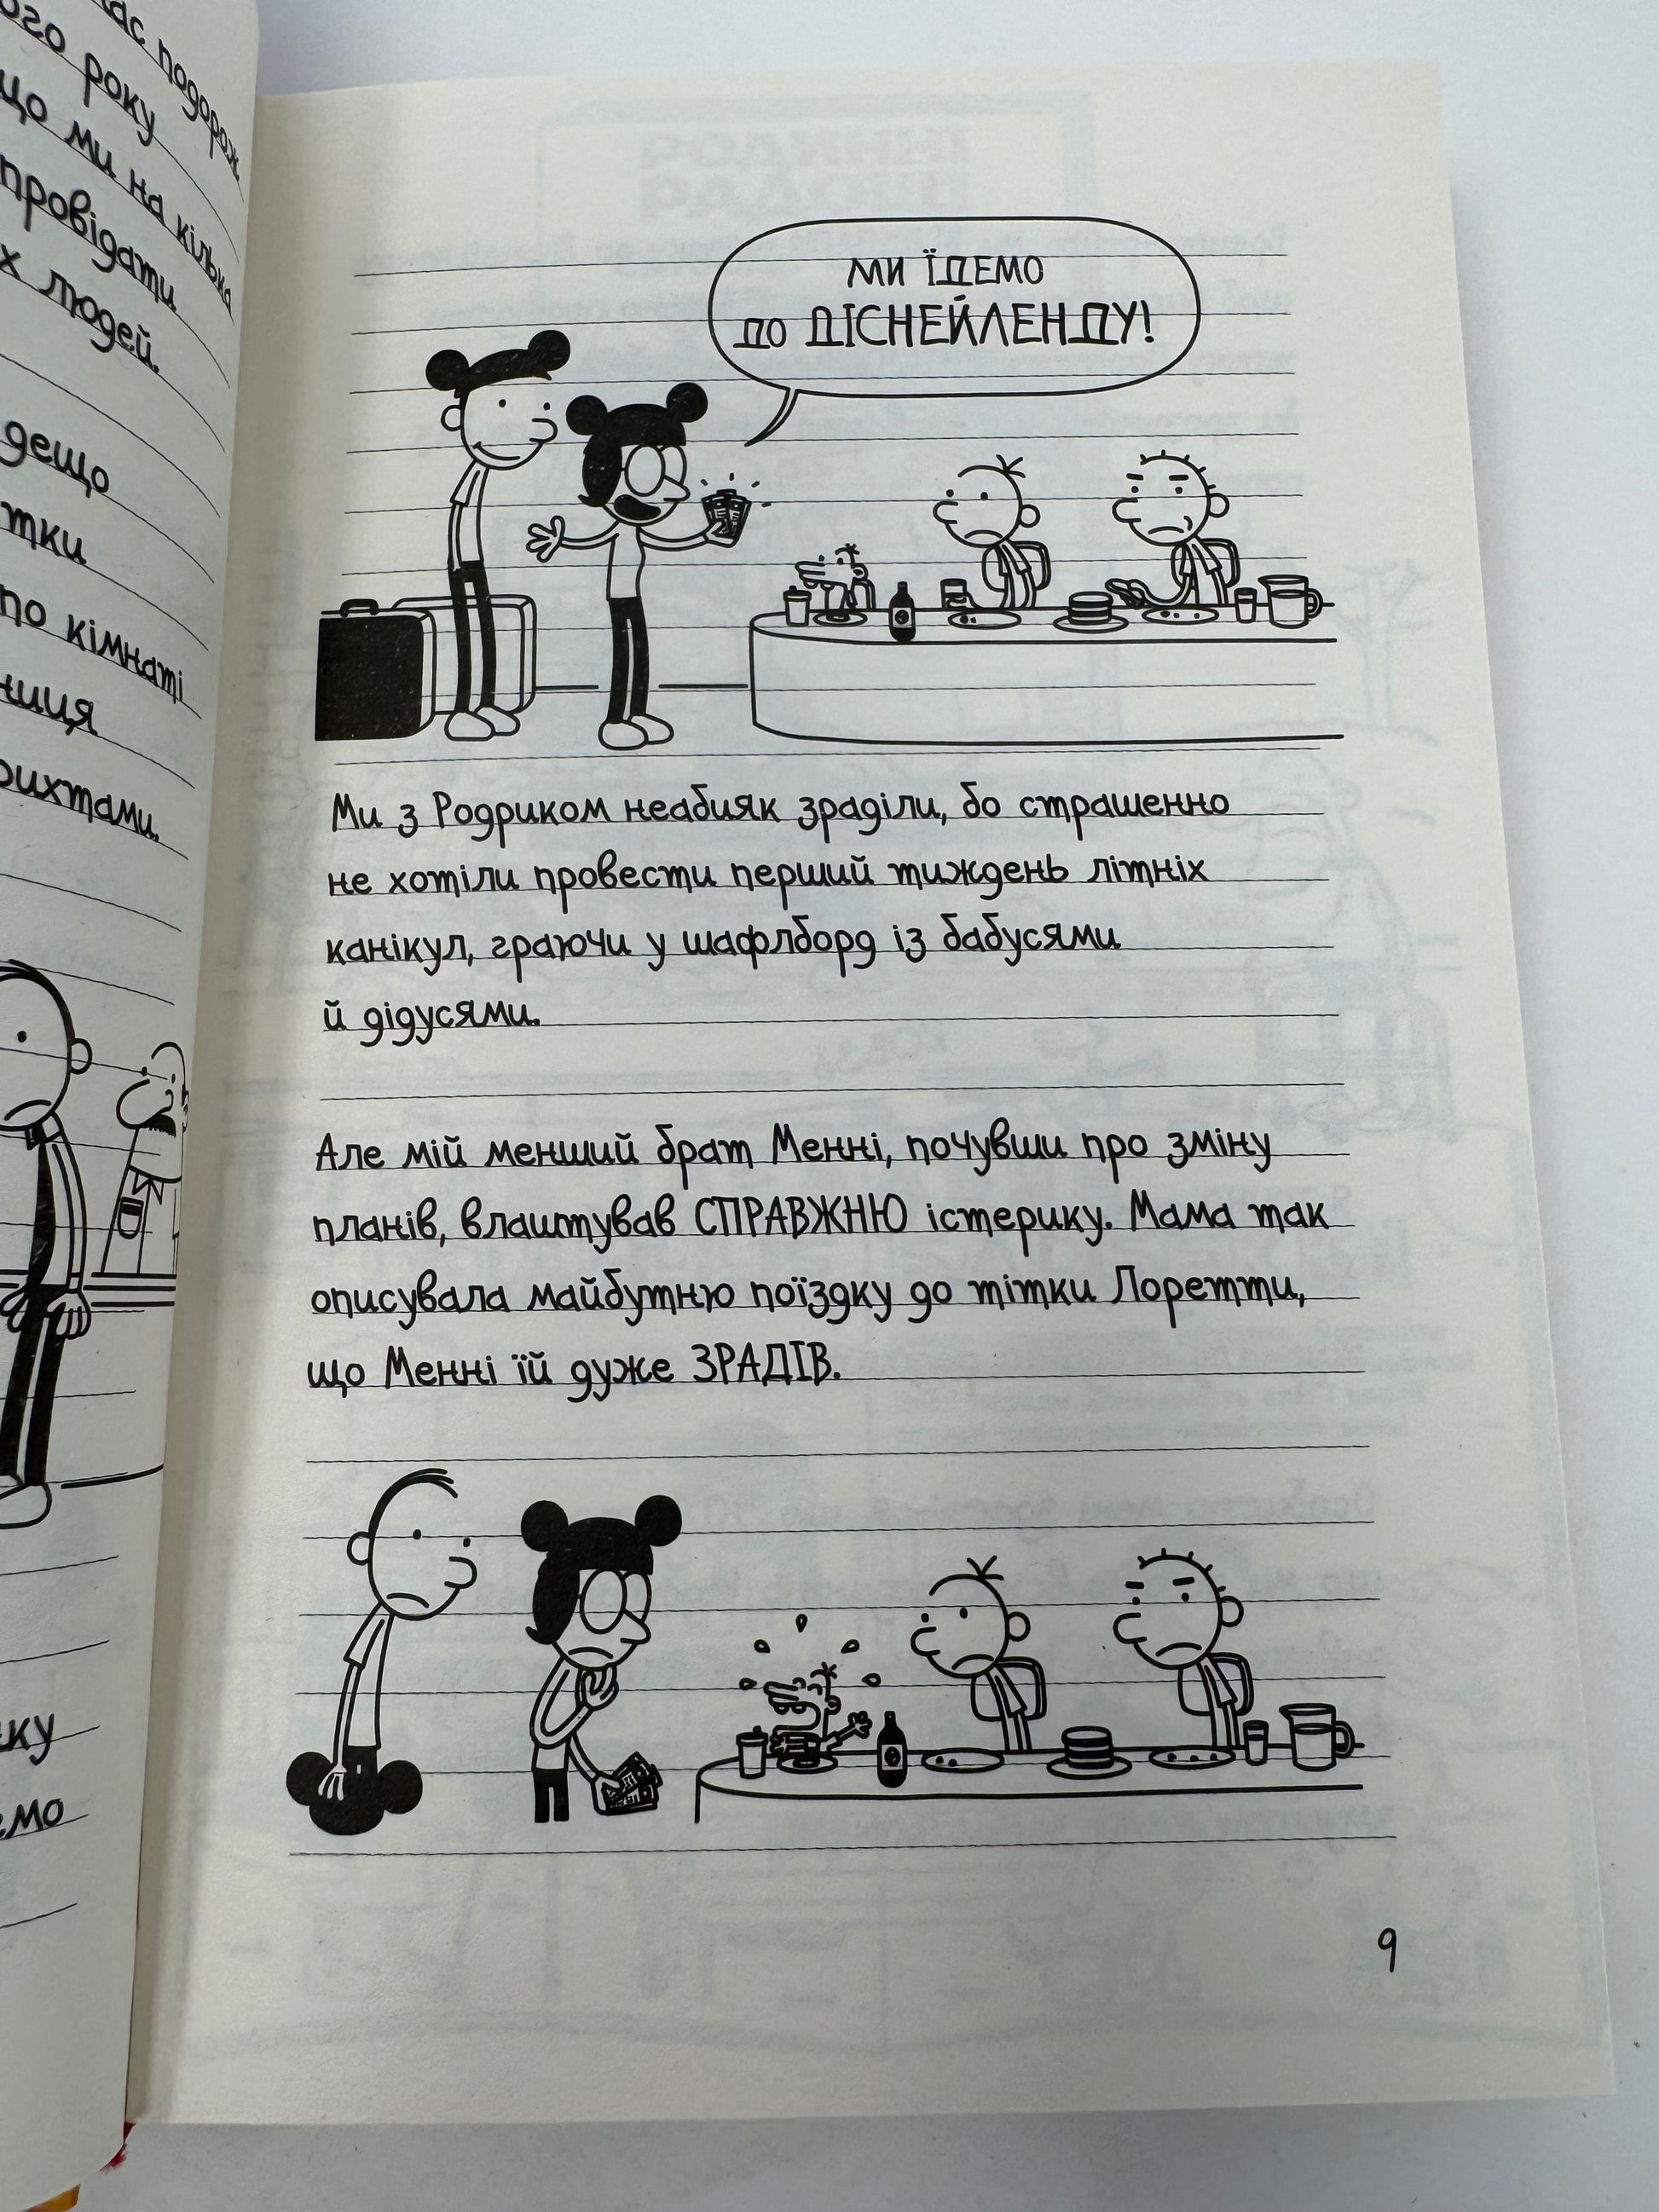 року
що ми на кілька
провідати
людей.
дещо
по кімнаті
МИ ЇДЕМО
ДО ДІСНЕЙЛЕНДУ!
Ми з Родриком неабияк зраділи, бо страшенно
не хотіли провести перший тиждень літніх
канікул, граючи у шафлборд із бабусями
й дідусями.
Але мій менший брат Менні, почувши про зміну
планів, влаштував СПРАВЖНЮ істерику. Мама так
описувала майбутню поїздку до тітки Лоретти,
що Менні їй дуже ЗРАДІВ.
9